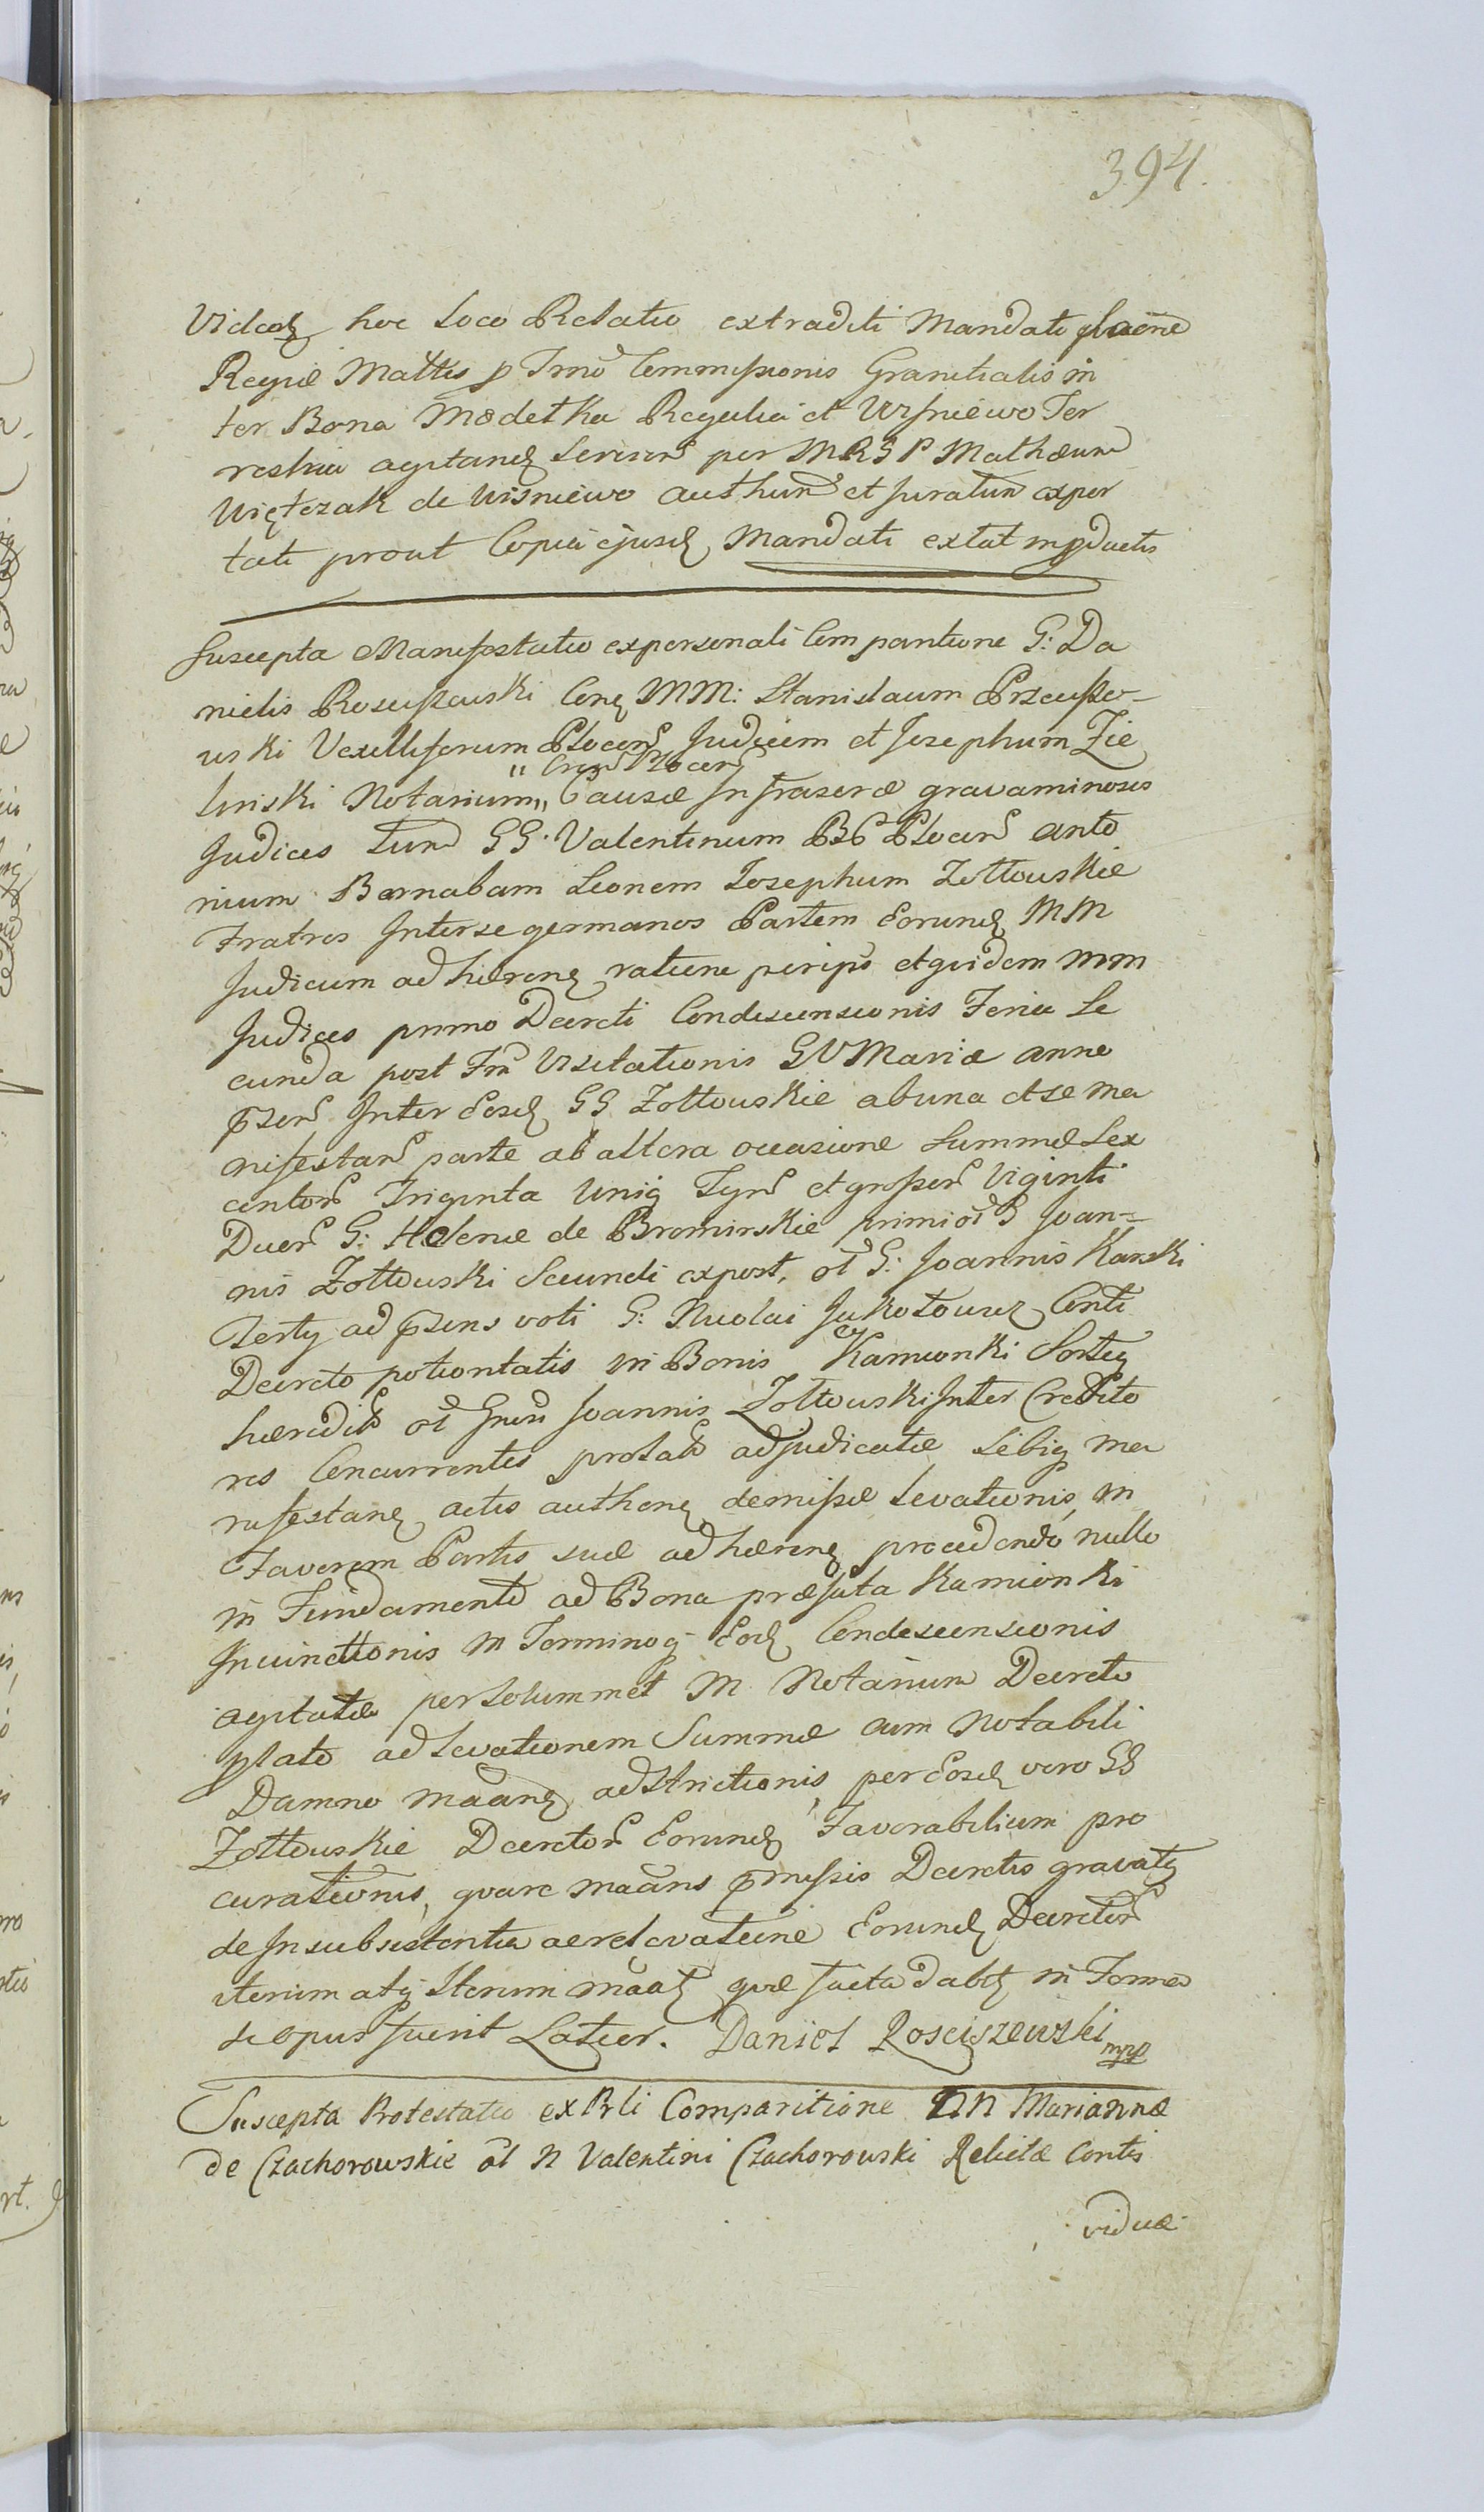 394.
Videatʒ hoc Loco Relatio extraditi Mandati
Regiæ Mattis p Trnô Commissionis Granitialis in
ter Bona Modetka Regalia et Wisniewo Ter
restria agitanʒ Servien per M R S P Mathæum
Więtczak de Wisniewo authun et juratum expor
tati prout Copia ejusdʒ Mandati extat in pductis
Suscepta Manifestatio ex personali Comparitione G: Da
nielis Rosciszewski Conʒ MM: Stanislaum Przeciszo-
wski Vexilliferum Plocen Judicem et Josephum Zie
" Cren Plocen
linski Notarium " Causæ Infrascræ gravaminosos
Judices tum GG. Valentinum BG Plocen Anto
nium Barnabam Leonem Josephum Zottowskie
Fratres Inter se germanos Partem Eorundʒ MM
Judicum adhærenʒ ratione perips et quidem MM
Judices primo Decreti Condescensionis Feria Se
cunda post Fm Visitationis BVMariæ anno
pzen Inter Eosdʒ GG Zottowskie ab una et se ma
nifestan parte ab altera occasione Summæ Sex
centor Triginta Uniq Tyn et grossor Viginti
Duor G: Helenæ de Bromirskie primi ol G Joan-
nis Zottowski Secundi expost, ol G: Joannis Karski
Terty ad pzens voti G: Nicolai Jukotowicz Conti
Decreto potioritatis in Bonis Kamionki Sortis
hæredit ol Gnsi Joannis Zottowski Inter Credito
res Concurrentes prolato adjudicatæ Sibiq ma
nifestanʒ actis authenʒ demissæ Levationis, in
Favorem Partis suæ adhærenʒ procedendo, nullo
in Fundamento ad Bona præfata Kamionki
Inviinctionis in Terminoq Eodʒ Condescensionis
agitatæ per Solummet M Notarium Decreto
plato ad Levationem Summæ cum Notabili
Damno maanʒ adstrictionis, per Eosdʒ vero GG
Zottowskie Decretor Eorundʒ Favorabilium pro
curationis, quare maans pmissis Decretis gravatʒ
de Insubsistentia ac relevatione Eorundʒ Decretor
iterum atq Iterum maatʒ quæ facta dabitʒ in Forma
si opus fuerit Latior. Daniel Rosciszewski mpp
Suscepta Protestatio ex Prli Comparitione NN Mariannæ
de Czachorowskie ol N Valentini Czachorowski Relictæ Contis
viduæ